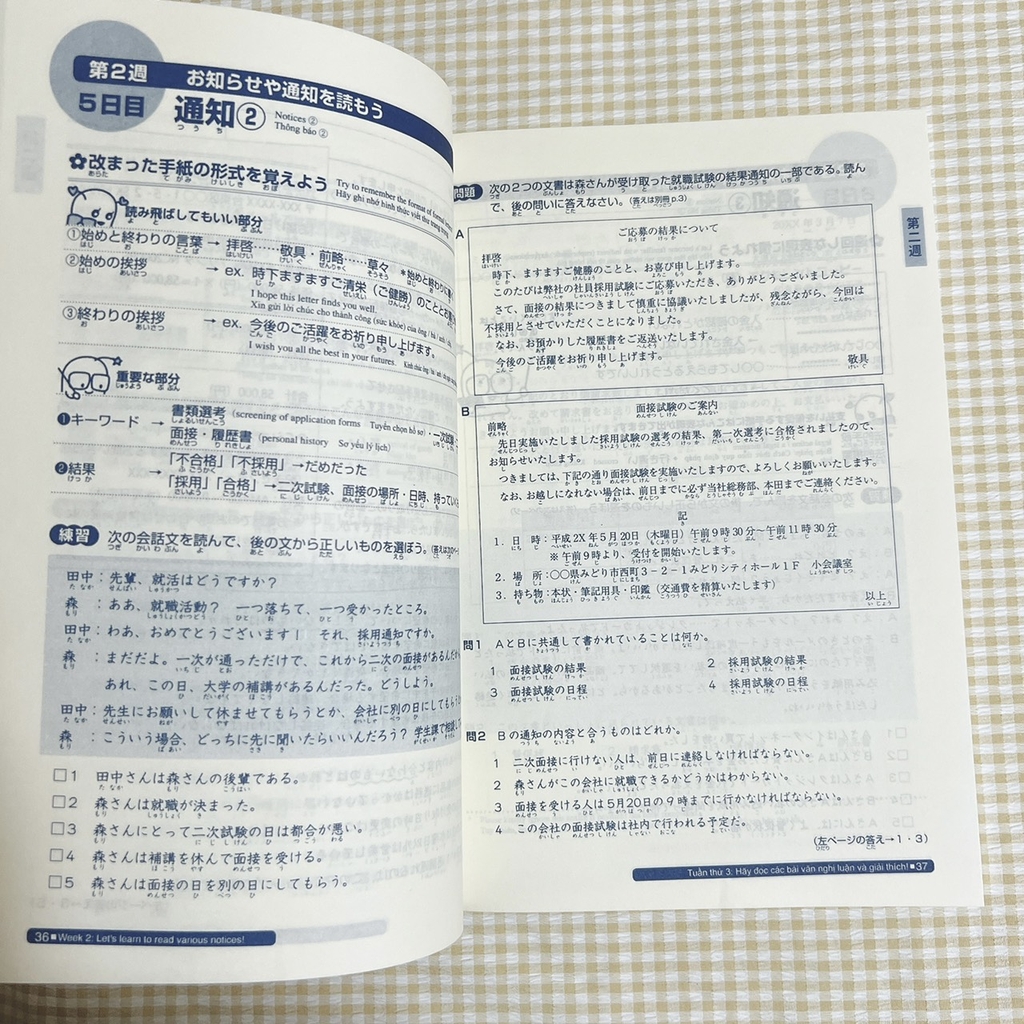 第2週 お知らせや通知を読もう
5日目 通知②
つうち
Notices ②
Thông báo ②
改まった手紙の形式を覚えよう
Try to remember the format of formal
Hãy ghi nhớ hình thức viết thư trang trọng
読み飛ばしてもいい部分
①始めと終わりの言葉 → 拝啓……敬具・前略……草々 *始めと終わりに
②始めの挨拶 → ex. 時下ますますご清栄（ご健勝）のこととお
I hope this letter finds you well.
Xin gửi lời chúc cho thành công (sức khỏe) của ông / bà / anh
③終わりの挨拶 → ex. 今後のご活躍をお祈り申し上げます。
I wish you all the best in your futures.
重要な部分
❶キーワード → 書類選考 (screening of application forms Tuyển chọn hồ sơ)・一次試験
面接・履歴書 (personal history Sơ yếu lý lịch)
❷結果 → 「不合格」「不採用」→だめだった
→ 「採用」「合格」→二次試験、面接の場所・日時、持ってい
練習 次の会話文を読んで、後の文から正しいものを選ぼう。
田中：先輩、就活はどうですか？
森：ああ、就職活動？ 一つ落ちて、一つ受かったところ。
田中：わあ、おめでとうございます！ それ、採用通知ですか。
森：まだだよ。一次が通っただけで、これから二次の面接があるんだ
あれ、この日、大学の補講があるんだった。どうしよう。
田中：先生にお願いして休ませてもらうとか、会社に別の日にしてもら
森：こういう場合、どっちに先に聞いたらいいんだろう？ 学生課で相談
□1 田中さんは森さんの後輩である。
□2 森さんは就職が決まった。
□3 森さんにとって二次試験の日は都合が悪い。
□4 森さんは補講を休んで面接を受ける。
□5 森さんは面接の日を別の日にしてもらう。
36 ■ Week 2: Let's learn to read various notices!
第二週
問題 次の2つの文書は森さんが受け取った就職試験の結果通知の一部である。読ん
で、後の問いに答えなさい。（答えは別冊p.3）
A
ご応募の結果について
拝啓
時下、ますますご健勝のことと、お喜び申し上げます。
このたびは弊社の社員採用試験にご応募いただき、ありがとうございました。
さて、面接の結果につきまして慎重に協議いたしましたが、残念ながら、今回は
不採用とさせていただくことになりました。
なお、お預かりした履歴書をご返送いたします。
今後のご活躍をお祈り申し上げます。
敬具
B
面接試験のご案内
前略
先日実施いたしました採用試験の選考の結果、第一次選考に合格されましたので、
お知らせいたします。
つきましては、下記の通り面接試験を実施いたしますので、よろしくお願いいたします。
なお、お越しになれない場合は、前日までに必ず当社総務部、本田までご連絡ください。
記
1. 日 時：平成2X年5月20日（木曜日）午前9時30分～午前11時30分
※午前9時より、受付を開始いたします。
2. 場 所：〇〇県みどり市西町3－2－1みどりシティホール1F 小会議室
3. 持ち物：本状・筆記用具・印鑑（交通費を精算いたします）
以上
問1 AとBに共通して書かれていることは何か。
1 面接試験の結果 2 採用試験の結果
3 面接試験の日程 4 採用試験の日程
問2 Bの通知の内容と合うものはどれか。
1 二次面接に行けない人は、前日に連絡しなければならない。
2 森さんがこの会社に就職できるかどうかはわからない。
3 面接を受ける人は5月20日の9時までに行かなければならない。
4 この会社の面接試験は社内で行われる予定だ。
（左ページの答え→1・3）
Tuần thứ 3. Hãy đọc các bài văn nghị luận và giải thích! ■ 37